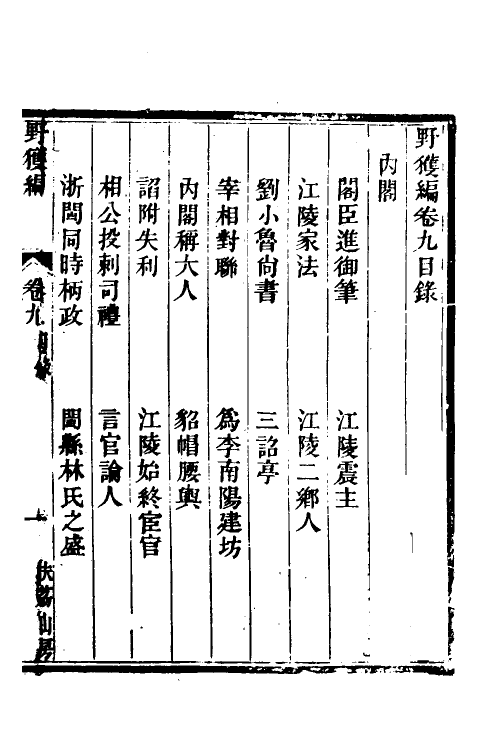 野獲編卷九目錄
內閣
閣臣進御筆　江陵震主
江陵家法　江陵二鄉人
劉小魯尙書　三詔亭
宰相對聯　爲李南陽建坊
內閣稱大人　貂帽腰輿
諂附失利　江陵始終宦官
相公投刺司禮　言官論人
浙閩同時柄政　閩縣林氏之盛
野獲編　卷九目錄　一　扶荔山房